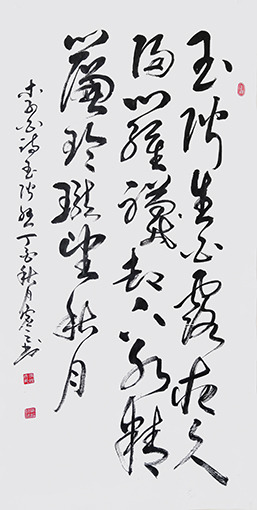 玉階生白露夜久
侵羅襪却下水精
簾玲瓏望秋月
李白詩玉階怨丁酉秋月